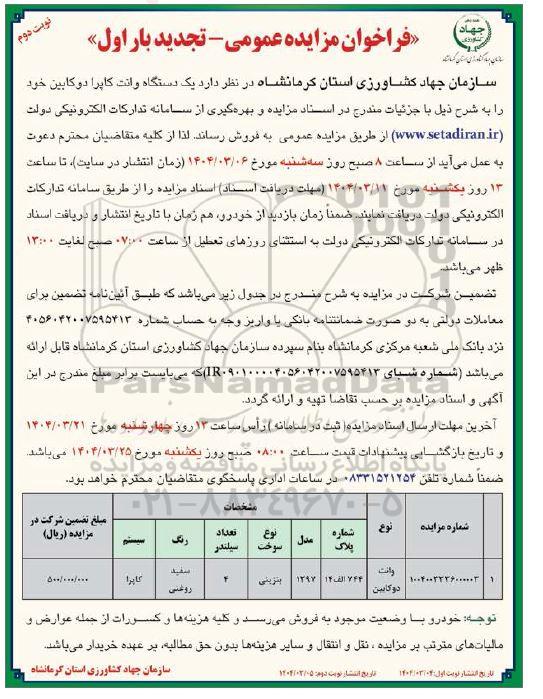 نوبت دوم
جهاد کشاورزی
سازمان جهاد کشاورزی استان کرمانشاه
«فراخوان مزایده عمومی - تجدید بار اول»
سازمان جهاد کشاورزی استان کرمانشاه در نظر دارد یک دستگاه وانت کاپرا دوکابین خود
را به شرح ذیل با جزئیات مندرج در اسناد مزایده و بهره‌گیری از سامانه تدارکات الکترونیکی دولت
(www.setadiran.ir) از طریق مزایده عمومی به فروش رساند. لذا از کلیه متقاضیان محترم دعوت
به عمل می‌آید از ساعت ۸ صبح روز سه‌شنبه مورخ ۱۴۰۴/۰۳/۰۶ (زمان انتشار در سایت)، تا ساعت
۱۳ روز یکشنبه مورخ ۱۴۰۴/۰۳/۱۱ (مهلت دریافت اسناد) اسناد مزایده را از طریق سامانه تدارکات
الکترونیکی دولت دریافت نمایند. ضمناً زمان بازدید از خودرو، هم زمان با تاریخ انتشار و دریافت اسناد
در سامانه تدارکات الکترونیکی دولت به استثنای روزهای تعطیل از ساعت ۰۷:۰۰ صبح لغایت ۱۳:۰۰
ظهر می‌باشد.
تضمین شرکت در مزایده به شرح مندرج در جدول زیر می‌باشد که طبق آئین‌نامه تضمین برای
معاملات دولتی به دو صورت ضمانتنامه بانکی یا واریز وجه به حساب شماره ۴۰۵۶۰۴۲۰۰۷۵۹۵۴۱۳
نزد بانک ملی شعبه مرکزی کرمانشاه بنام سپرده سازمان جهاد کشاورزی استان کرمانشاه قابل ارائه
می‌باشد (شماره شبای IR۰۹۰۱۰۰۰۰۴۰۵۶۰۴۲۰۰۷۵۹۵۴۱۳) که می‌بایست برابر مبلغ مندرج در این
آگهی و اسناد مزایده بر حسب تقاضا تهیه و ارائه گردد.
آخرین مهلت ارسال اسناد مزایده( ثبت در سامانه ) رأس ساعت ۱۳ روز چهارشنبه مورخ ۱۴۰۴/۰۳/۲۱
و تاریخ بازگشایی پیشنهادات قیمت ساعت ۰۸:۰۰ صبح روز یکشنبه مورخ ۱۴۰۴/۰۳/۲۵ می‌باشد.
ضمناً شماره تلفن ۰۸۳۳۱۵۲۱۲۵۴ در ساعات اداری پاسخگوی متقاضیان محترم خواهد بود.
ParsNamadData
پایگاه اطلاع رسانی مناقصه و مزایده
۰۲۱-۸۸۳۴۹۶۷۰-۵
شماره مزایده نوع مشخصات مبلغ تضمین شرکت در مزایده (ریال)
شماره پلاک مدل نوع سوخت تعداد سیلندر رنگ سیستم
۱ ۱۰۰۴۰۰۳۲۲۶۰۰۰۰۰۳ وانت دوکابین ۷۴۴ الف ۱۴ ۱۳۹۷ بنزینی ۴ سفید روغنی کاپرا ۵۰۰/۰۰۰/۰۰۰
توجه: خودرو با وضعیت موجود به فروش می‌رسد و کلیه هزینه‌ها و کسورات از جمله عوارض و
مالیات‌های مترتب بر مزایده ، نقل و انتقال و سایر هزینه‌ها بدون حق مطالبه، بر عهده خریدار می‌باشد.
تاریخ انتشار نوبت اول: ۱۴۰۴/۰۳/۰۴ تاریخ انتشار نوبت دوم: ۱۴۰۴/۰۳/۰۵ سازمان جهاد کشاورزی استان کرمانشاه